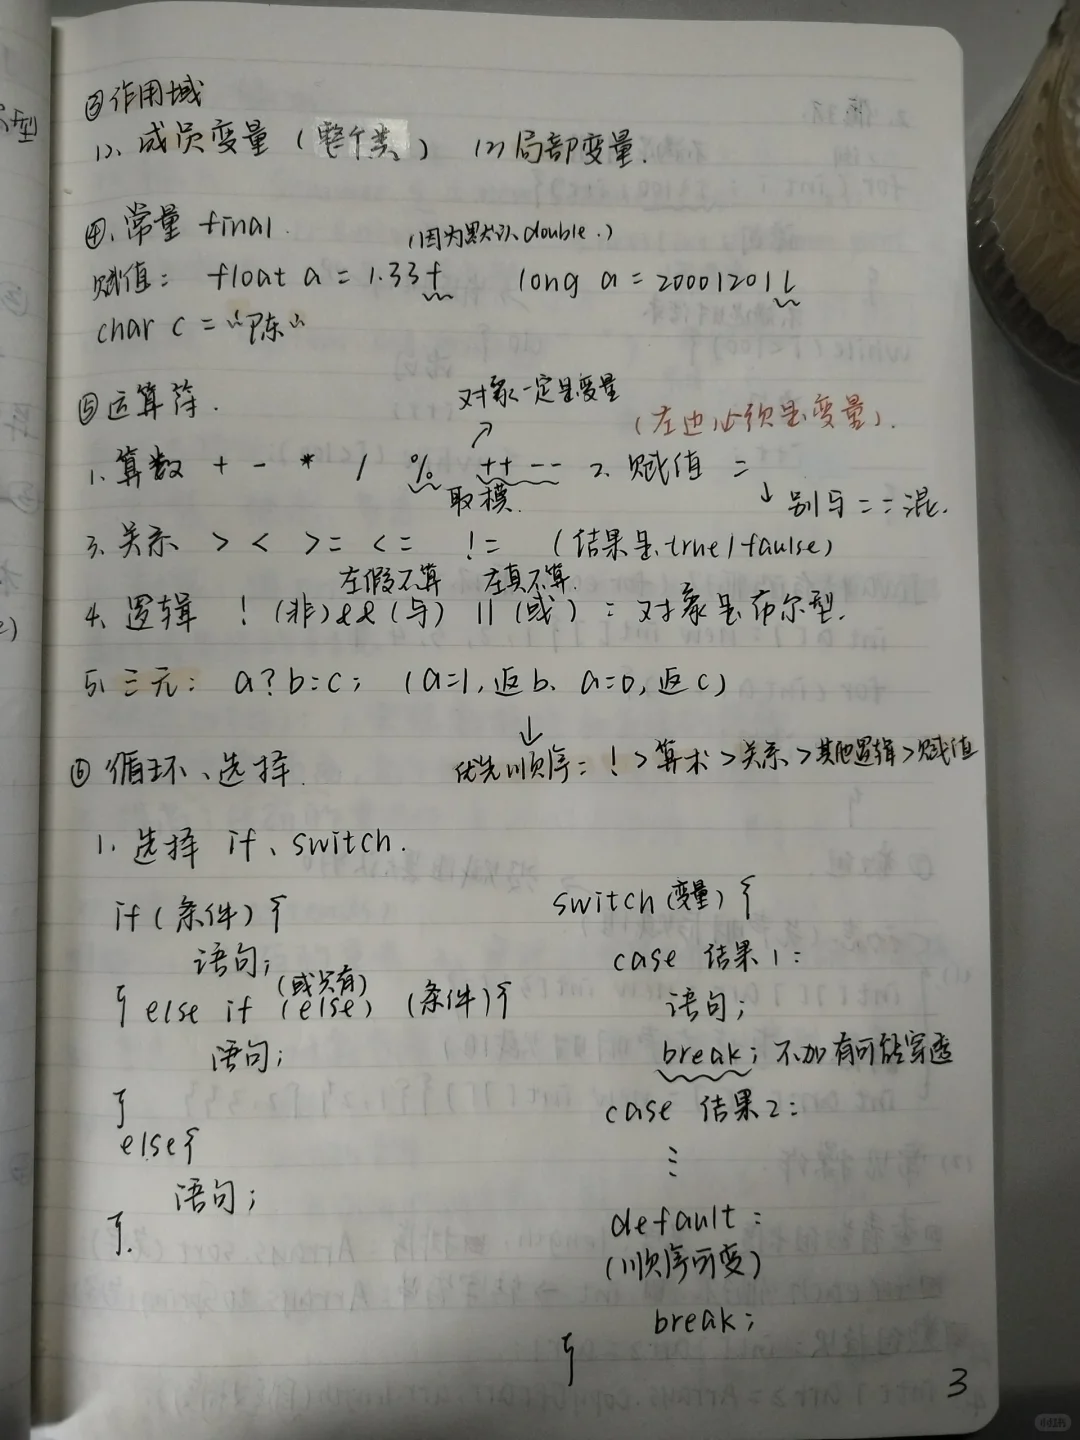 ③作用域
(1)、成员变量（整个类） (2)局部变量.
④、常量 final.
(因为默认double.)
赋值： float a = 1.33f long a = 20001201L
char c = “陈”
⑤运算符.
对象一定是变量
(左边必须是变量).
1、算数 + - * / % ++ -- 2、赋值 =
取模.
别与==混.
3、关系 > < >= <= != (结果是true/faulse)
左假不算 左真不算.
4、逻辑 ! (非) && (与) || (或) : 对象是布尔型.
5、三元： a?b:c; (a=1,返b、a=0,返c)
优先顺序：! > 算术 > 关系 > 其他逻辑 > 赋值
⑥循环、选择.
1、选择 if、switch.
if(条件){
语句;
(或只有)
} else if (else) (条件){
语句;
}
else{
语句;
}.
switch(变量){
case 结果1:
语句;
break; 不加有可能穿透
case 结果2:
⋮
default:
(顺序可变)
break;
}
3